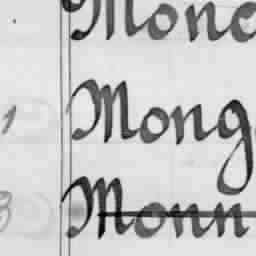 Mone
1 Mong
3 Monn